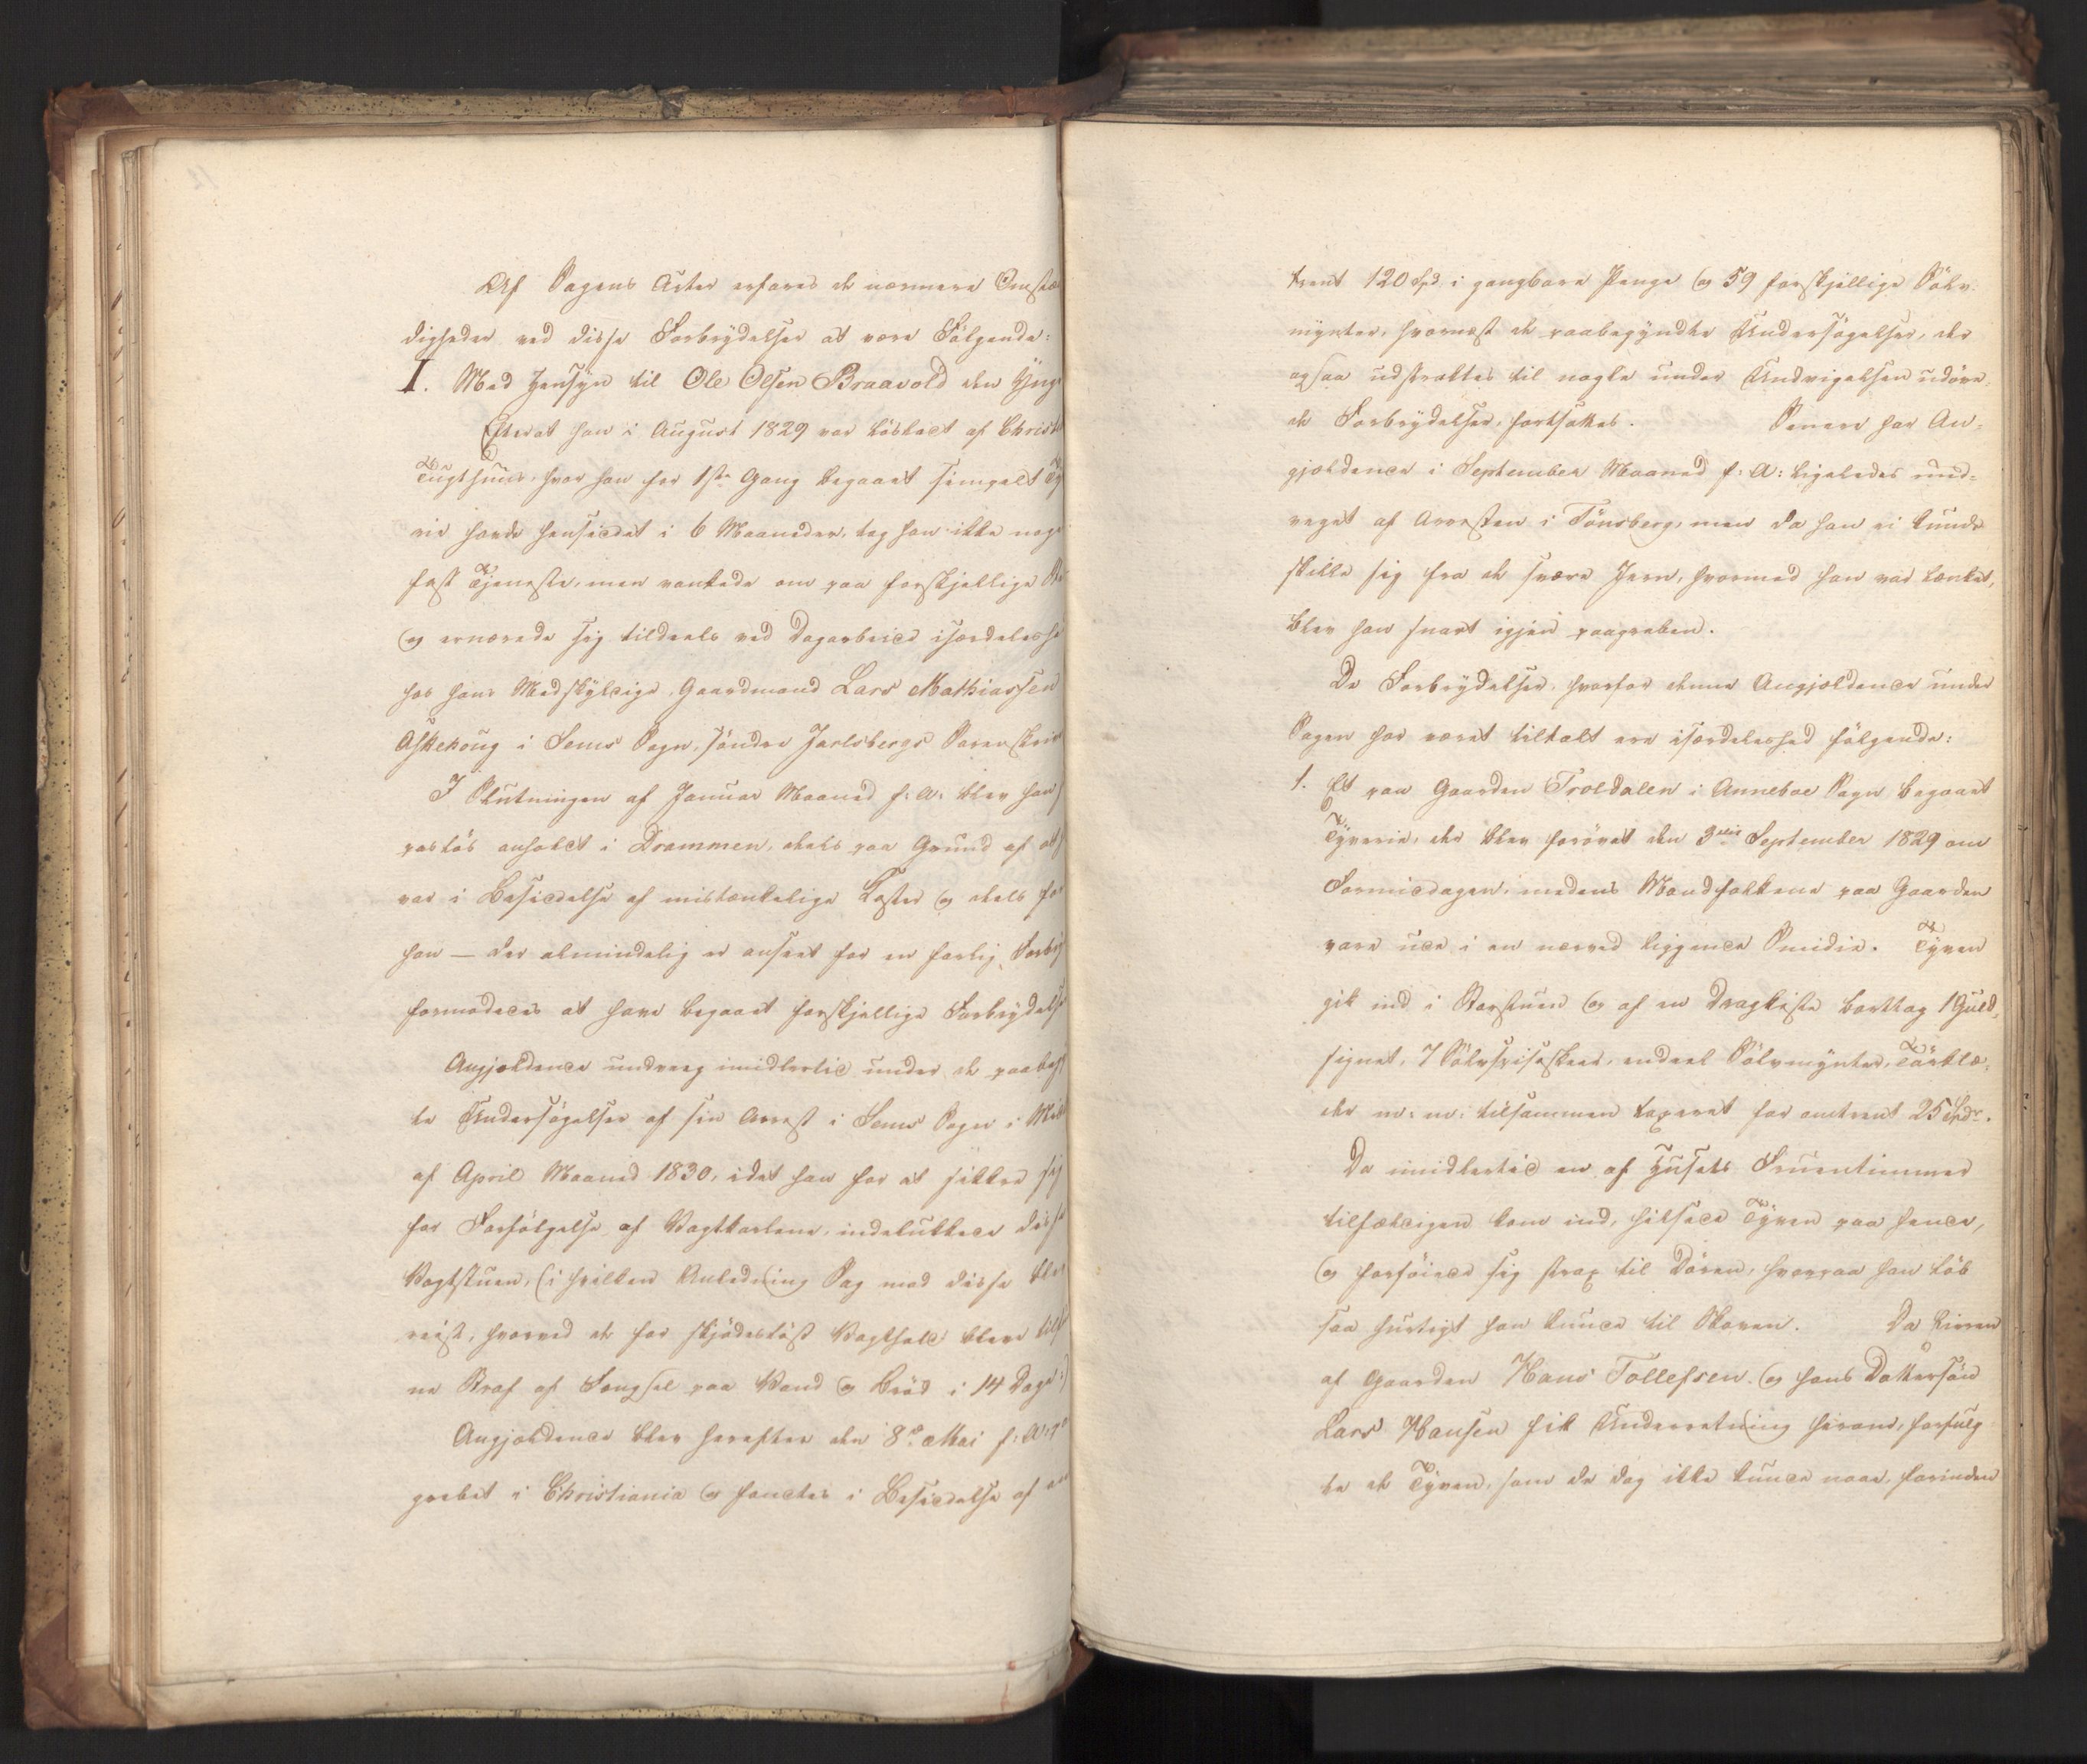 Af Sagens Acter erfares de nærmere Omstæn
digheder ved disse Forbrydelser at være Følgende:
I. Med Hensyn til Ole Olsen Braavold den Yngr
Efterat han i August 1829 var løsladt af Christ
Tugthuus, hvor han for 1ste Gang begaaet simpelt Ty
vie havde hensiddet i 6 Maaneder, tog han ikke noge
fast Tjeneste, men vankede om paa forskjellige Ste
og ernærede sig tildeels ved Dagarbeide isærdeleshe
hos hans Medskyldige, Gaardmand Lars Mathiassen
Askehoug i Sems Sogn, søndre Jarlsbergs Sorenskriv
I Slutningen af Januar Maaned f: A: blev han
pasløs anholdt i Drammen, deels paa Grund af at
var i Besiddelse af mistænkelige Koster og deels for
han — der almindelig er anseet for en farlig Forbry
formodedes at have begaaet forskjellige Forbrydelse
Angjeldende undveeg imidlertid under de paabegy
te Undersøgelser af sin Arrest i Sems Sogn i Midt
af April Maaned 1830, idet han for at sikkre sig
for Forfølgelse af Vagtkarlene, indelukkede disse
Vagtstuen, (i hvilken Anledning Sag mod disse blev
reist, hvorved de for skjødesløst Vagthold bleve tilf
ne Straf af Fængsel paa Vand og Brød i 14 Dage:)
Angjeldende blev herefter den 8de Mai f: A: p
grebet i Christiania og fandtes i Besiddelse af om
trent 120 Spd i gangbare Penge og 59 forskjellige Sølv-
mynter, hvornæst de paabegyndte Undersøgelser, der
ogsaa udstraktes til nogle under Undvigelsen udøve-
de Forbrydelser, fortsattes. Senere har An-
gjeldende i September Maaned f: A: ligeledes und-
veget af Arresten i Tønsberg, men da han ei kunde
skille sig fra de svære Jern, hvormed han var lænket,
blev han snart igjen paagreben.
De Forbrydelser, hvorfor denne Angjeldende under
Sagen har været tiltalt ere isærdeleshed følgende:
1. Et paa Gaarden Troldalen i Anneboe Sogn begaaet
Tyverie, der blev forøvet den 3die September 1829 om
Formiddagen, medens Mandfolkene paa Gaarden
vare ude i en nærved liggende Smidie. Tyven
gik ind i Storstuen og af en Dragkiste borttog 1 Guld-
signet, 7 Sølvspiseskeer, endeel Sølvmynter, Tørklæ-
der m: m: tilsammen taxeret for omtrent 25 Spdr.
Da imidlertid en af Husets Fruentimmer
tilfældigen kom ind, hilsede Tyven paa hende,
og forføiede sig strax til Døren, hvorpaa han løb
saa hurtigt han kunde til Skoven. Da Eieren
af Gaarden Hans Tollefsen og hans Dattersøn
Lars Hansen fik Underretning herom, forfulg
te de Tyven, som de dog ikke kunde naae, forinden